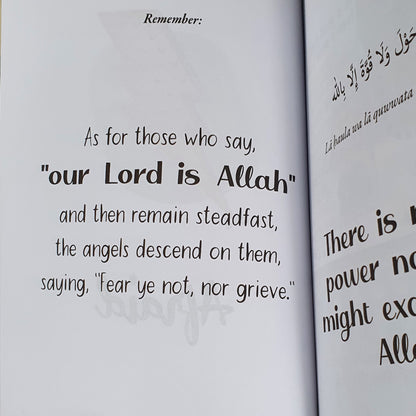 Remember:
As for those who say,
"our Lord is Allah"
and then remain steadfast,
the angels descend on them,
saying, "Fear ye not, nor grieve."
حَوْلَ وَلَا قُوَّةَ إِلَّا بِالله
Lā haula wa lā quwwata
There is
power
might